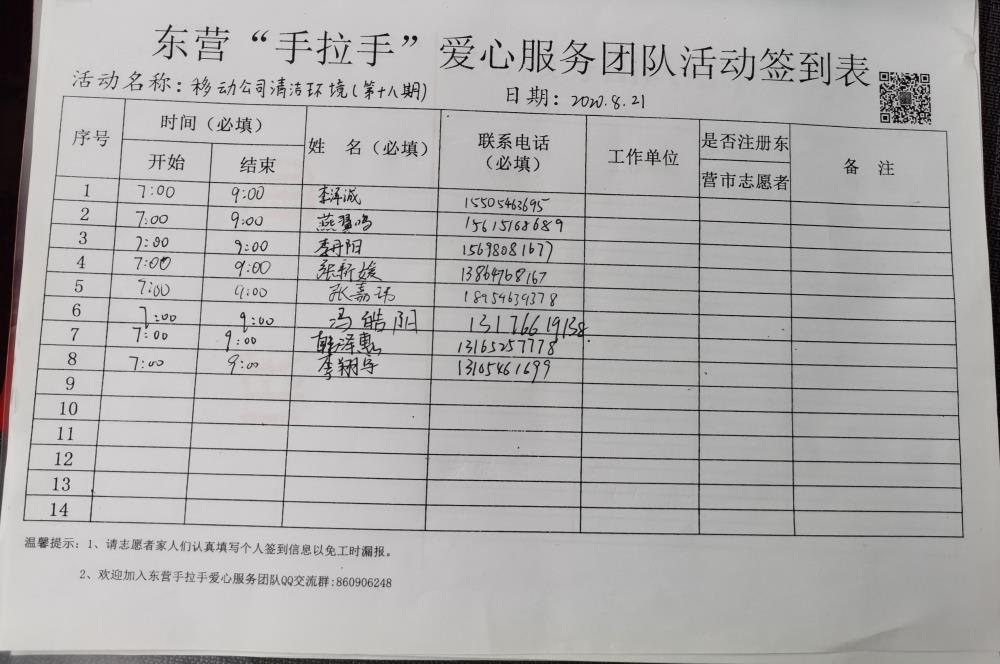 东营“手拉手”爱心服务团队活动签到表
活动名称：移动公司清洁环境（第十八期）
日期：2020.8.21
序号 时间（必填） 姓 名（必填） 联系电话（必填） 工作单位 是否注册东营市志愿者 备 注
开始 结束
1 7:00 9:00 李泽诚 15505463695
2 7:00 9:00 燕翼鸣 15615168689
3 7:00 9:00 李丹阳 15698081677
4 7:00 9:00 张新媛 13864768167
5 7:00 9:00 张嘉玮 18954639378
6 7:00 9:00 冯皓阳 13176619138
7 7:00 9:00 韩泽惠 13165257778
8 7:00 9:00 李翔宇 13105461699
9
10
11
12
13
14
温馨提示：1、请志愿者家人们认真填写个人签到信息以免工时漏报。
2、欢迎加入东营手拉手爱心服务团队QQ交流群:860906248